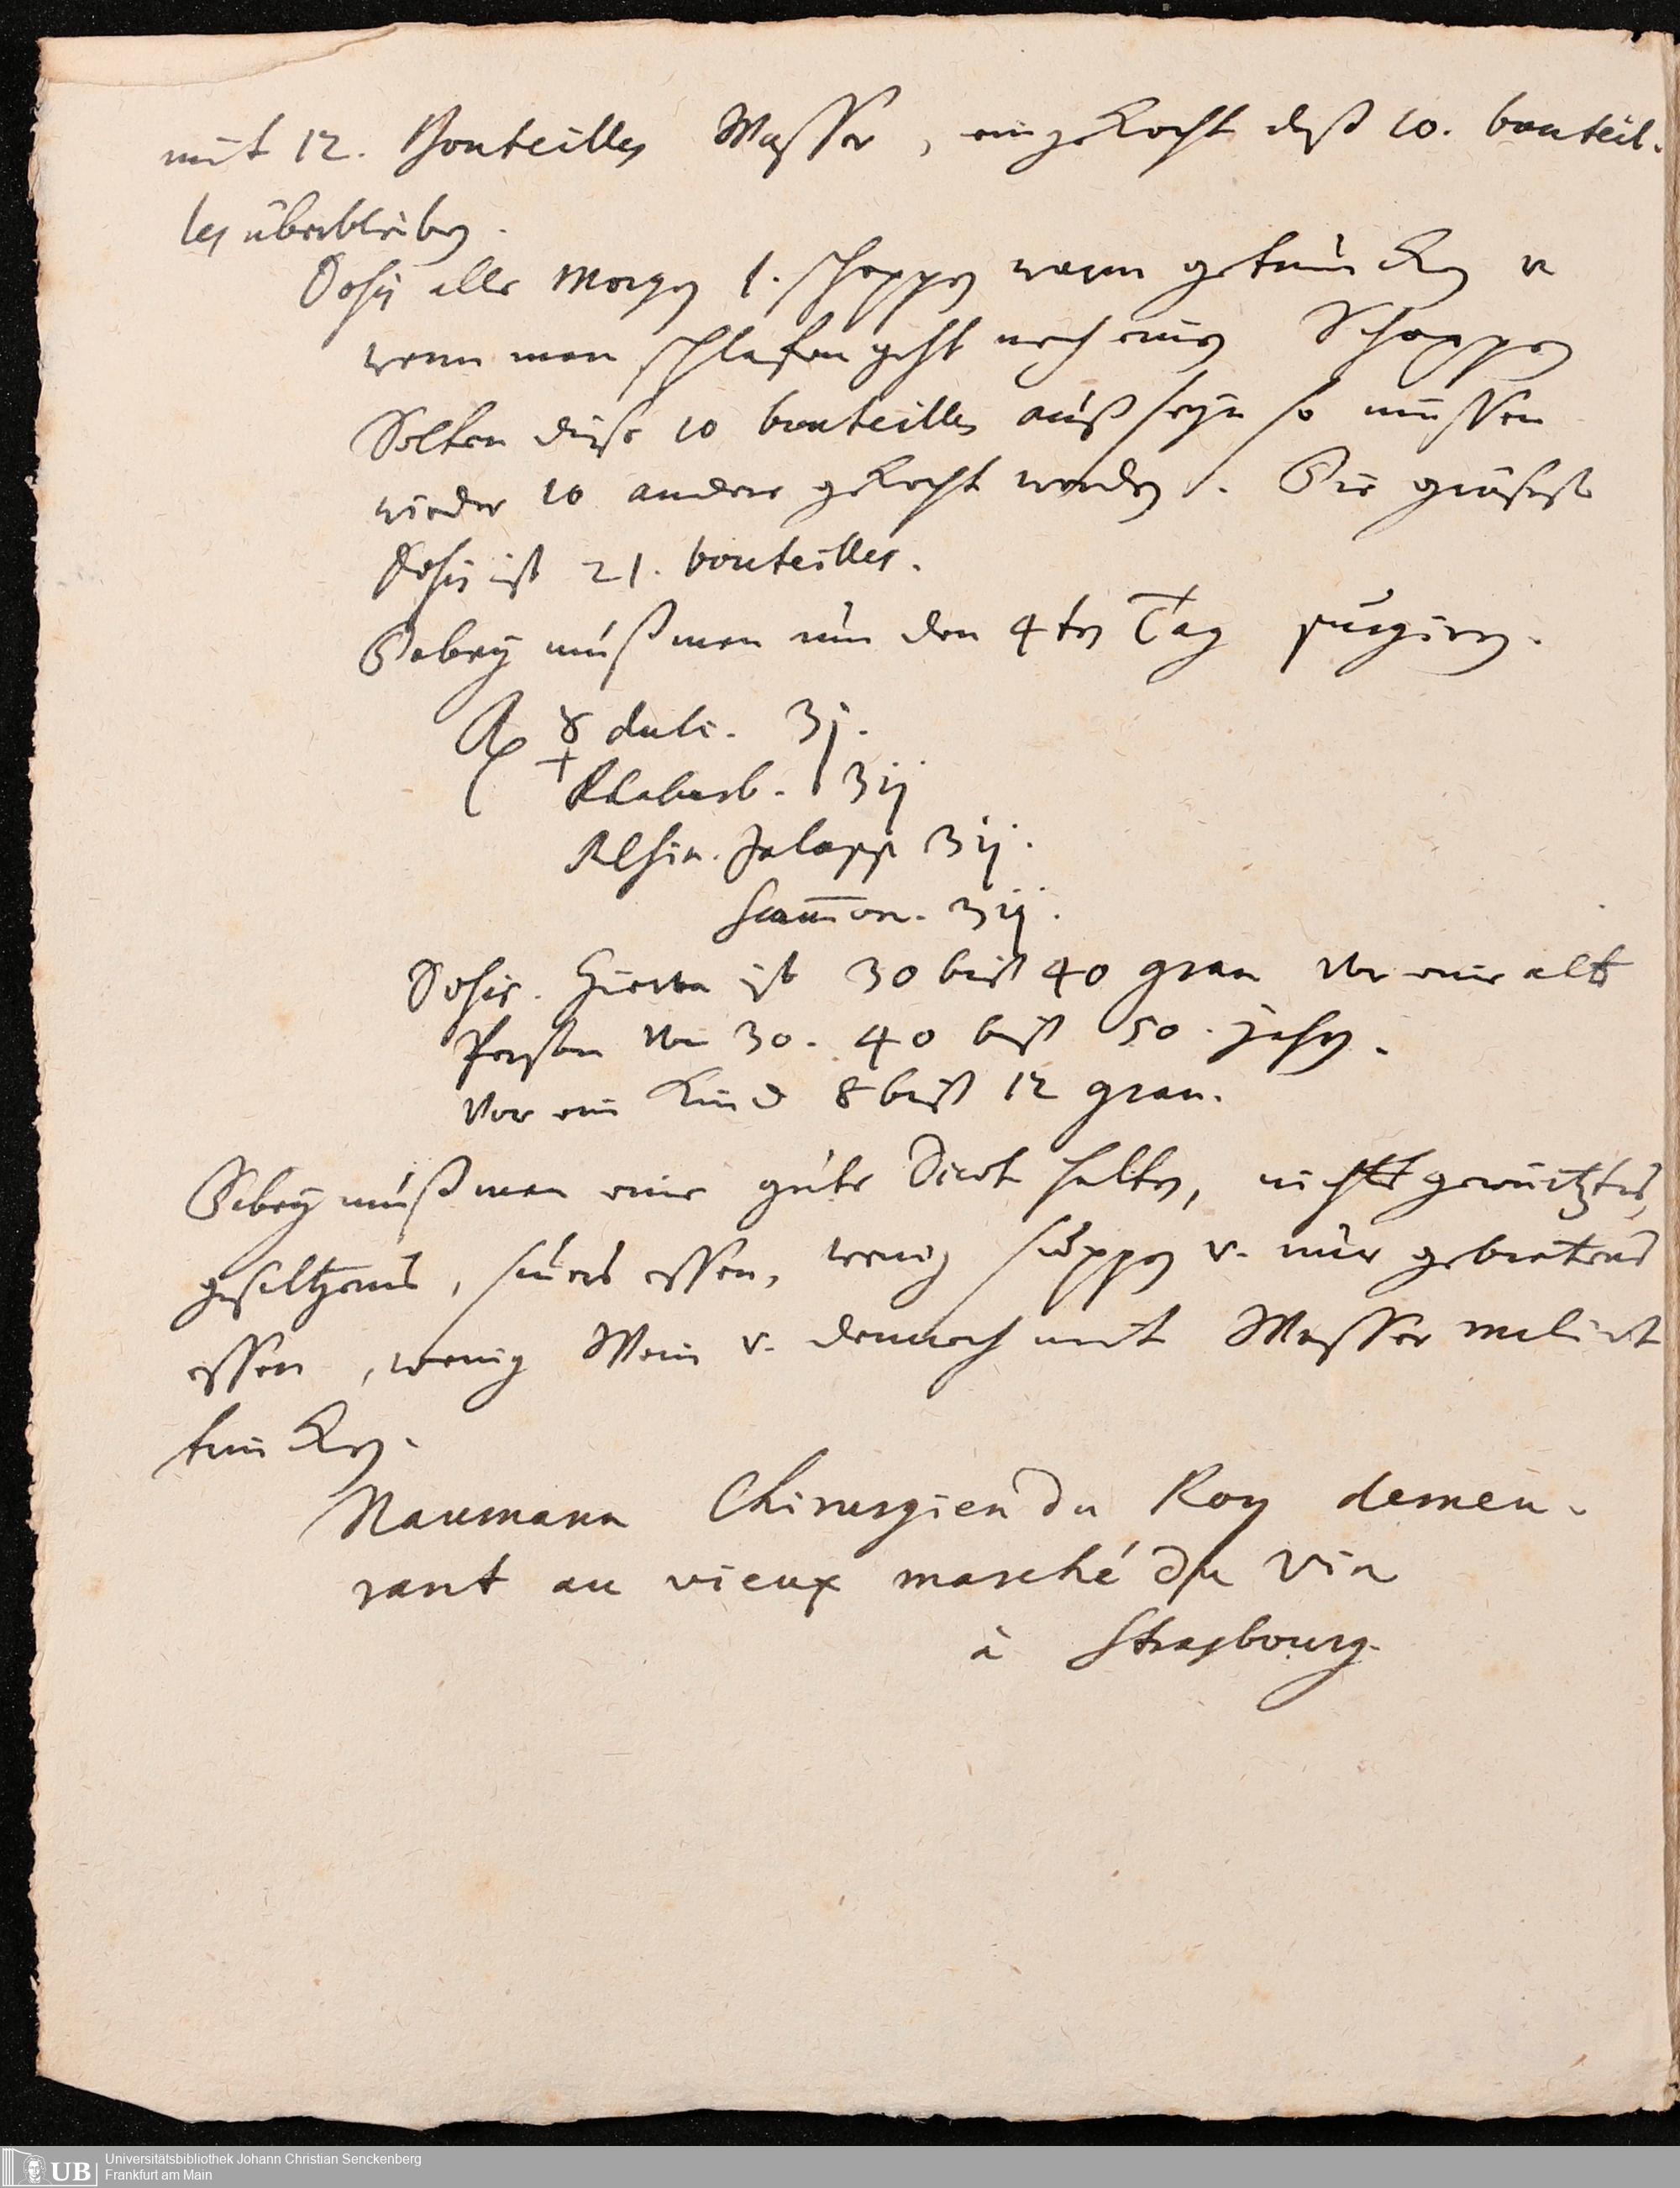 mit 12. Bouteilles Wasser, eingekocht daß 10. bouteil-
les überbleiben.
Dosis alle Morgen 1. schoppen warm getruncken u
wenn man schlafen geht noch einen Schoppen
Solten diese 10 bouteilles auß seyn so müssen
wieder 10 andere gekocht werden. Die gröseste
Dosis ist 21. bouteilles.
Dabey muß man nun den 4ten Tag purgiren.
℞ ☿ dulc. ʒj.
Rhabarb. ʒij
Resin. Jalapp ʒij.
Scam̅on. ʒij.
Dosis. hiervon ist 30 biß 40 gran vor eine alte
Person von 30. 40 biß 50. jahren.
Vor ein Kind 8 biß 12 gran.
Dabey muß man eine gute Diaet halten, nichts gewürtztes,
gesaltzens, saures essen, wenig suppen u. nur gebratens
essen, wenig Wein u. dennoch mit Wasser melirt
trincken.
Naumann Chirurgien du Roy demeu-
rant au vieux marché du Vin
à Strasbourg.
Universitätsbibliothek Johann Christian Senckenberg
Frankfurt am Main
UB